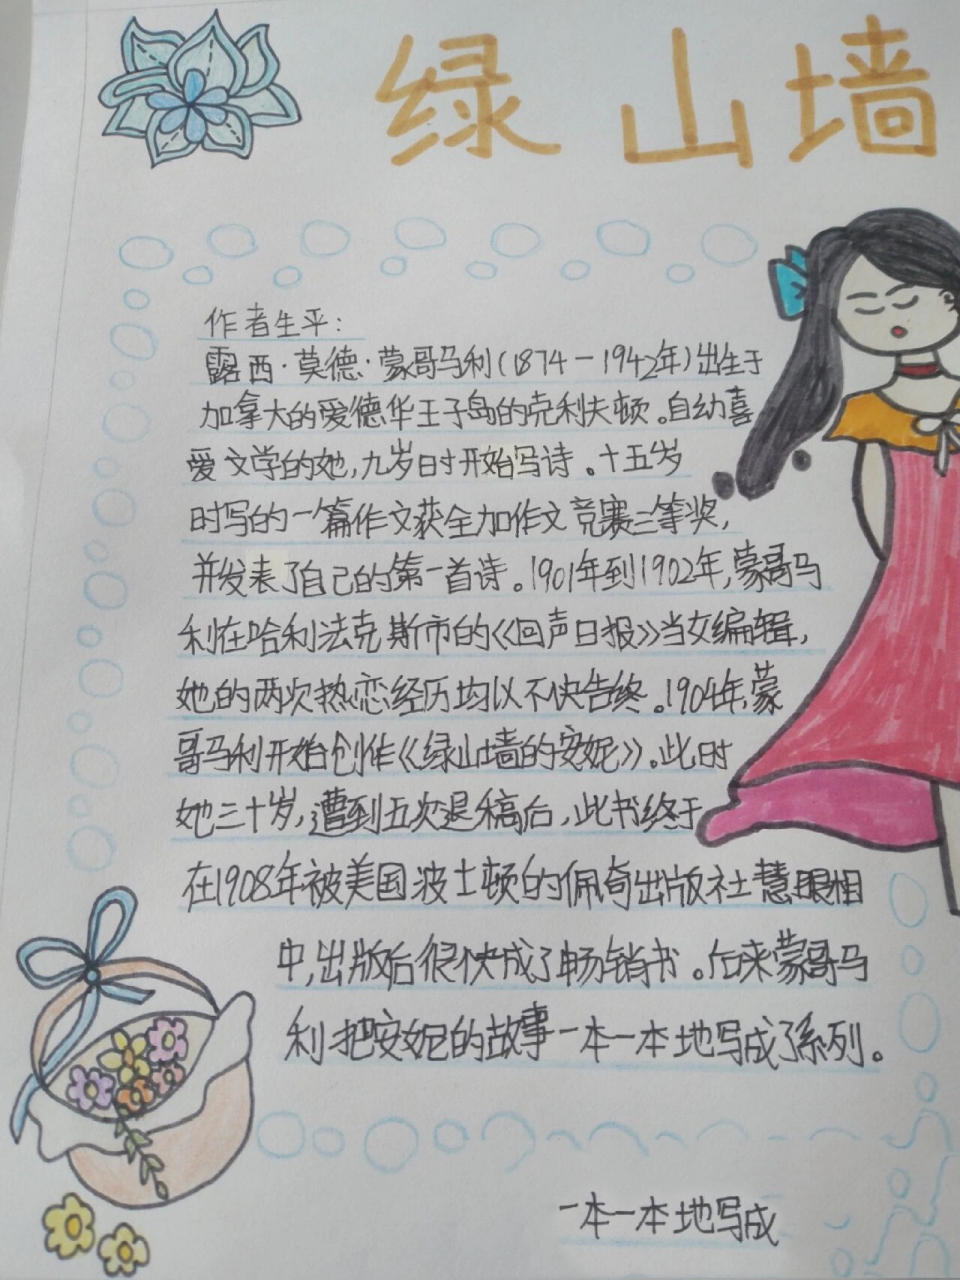 绿山墙
作者生平：
露西·莫德·蒙哥马利（1874－1942年）出生于
加拿大的爱德华王子岛的克利夫顿。自幼喜
爱文学的她，九岁时开始写诗。十五岁
时写的一篇作文获全加作文竞赛三等奖，
并发表了自己的第一首诗。1901年到1902年，蒙哥马
利在哈利法克斯市的《回声日报》当女编辑，
她的两次热恋经历均以不快告终。1904年，蒙
哥马利开始创作《绿山墙的安妮》。此时
她三十岁，遭到五次退稿后，此书终于
在1908年被美国波士顿的佩奇出版社慧眼相
中，出版后很快成了畅销书。后来蒙哥马
利把安妮的故事一本一本地写成了系列。
一本一本地写成